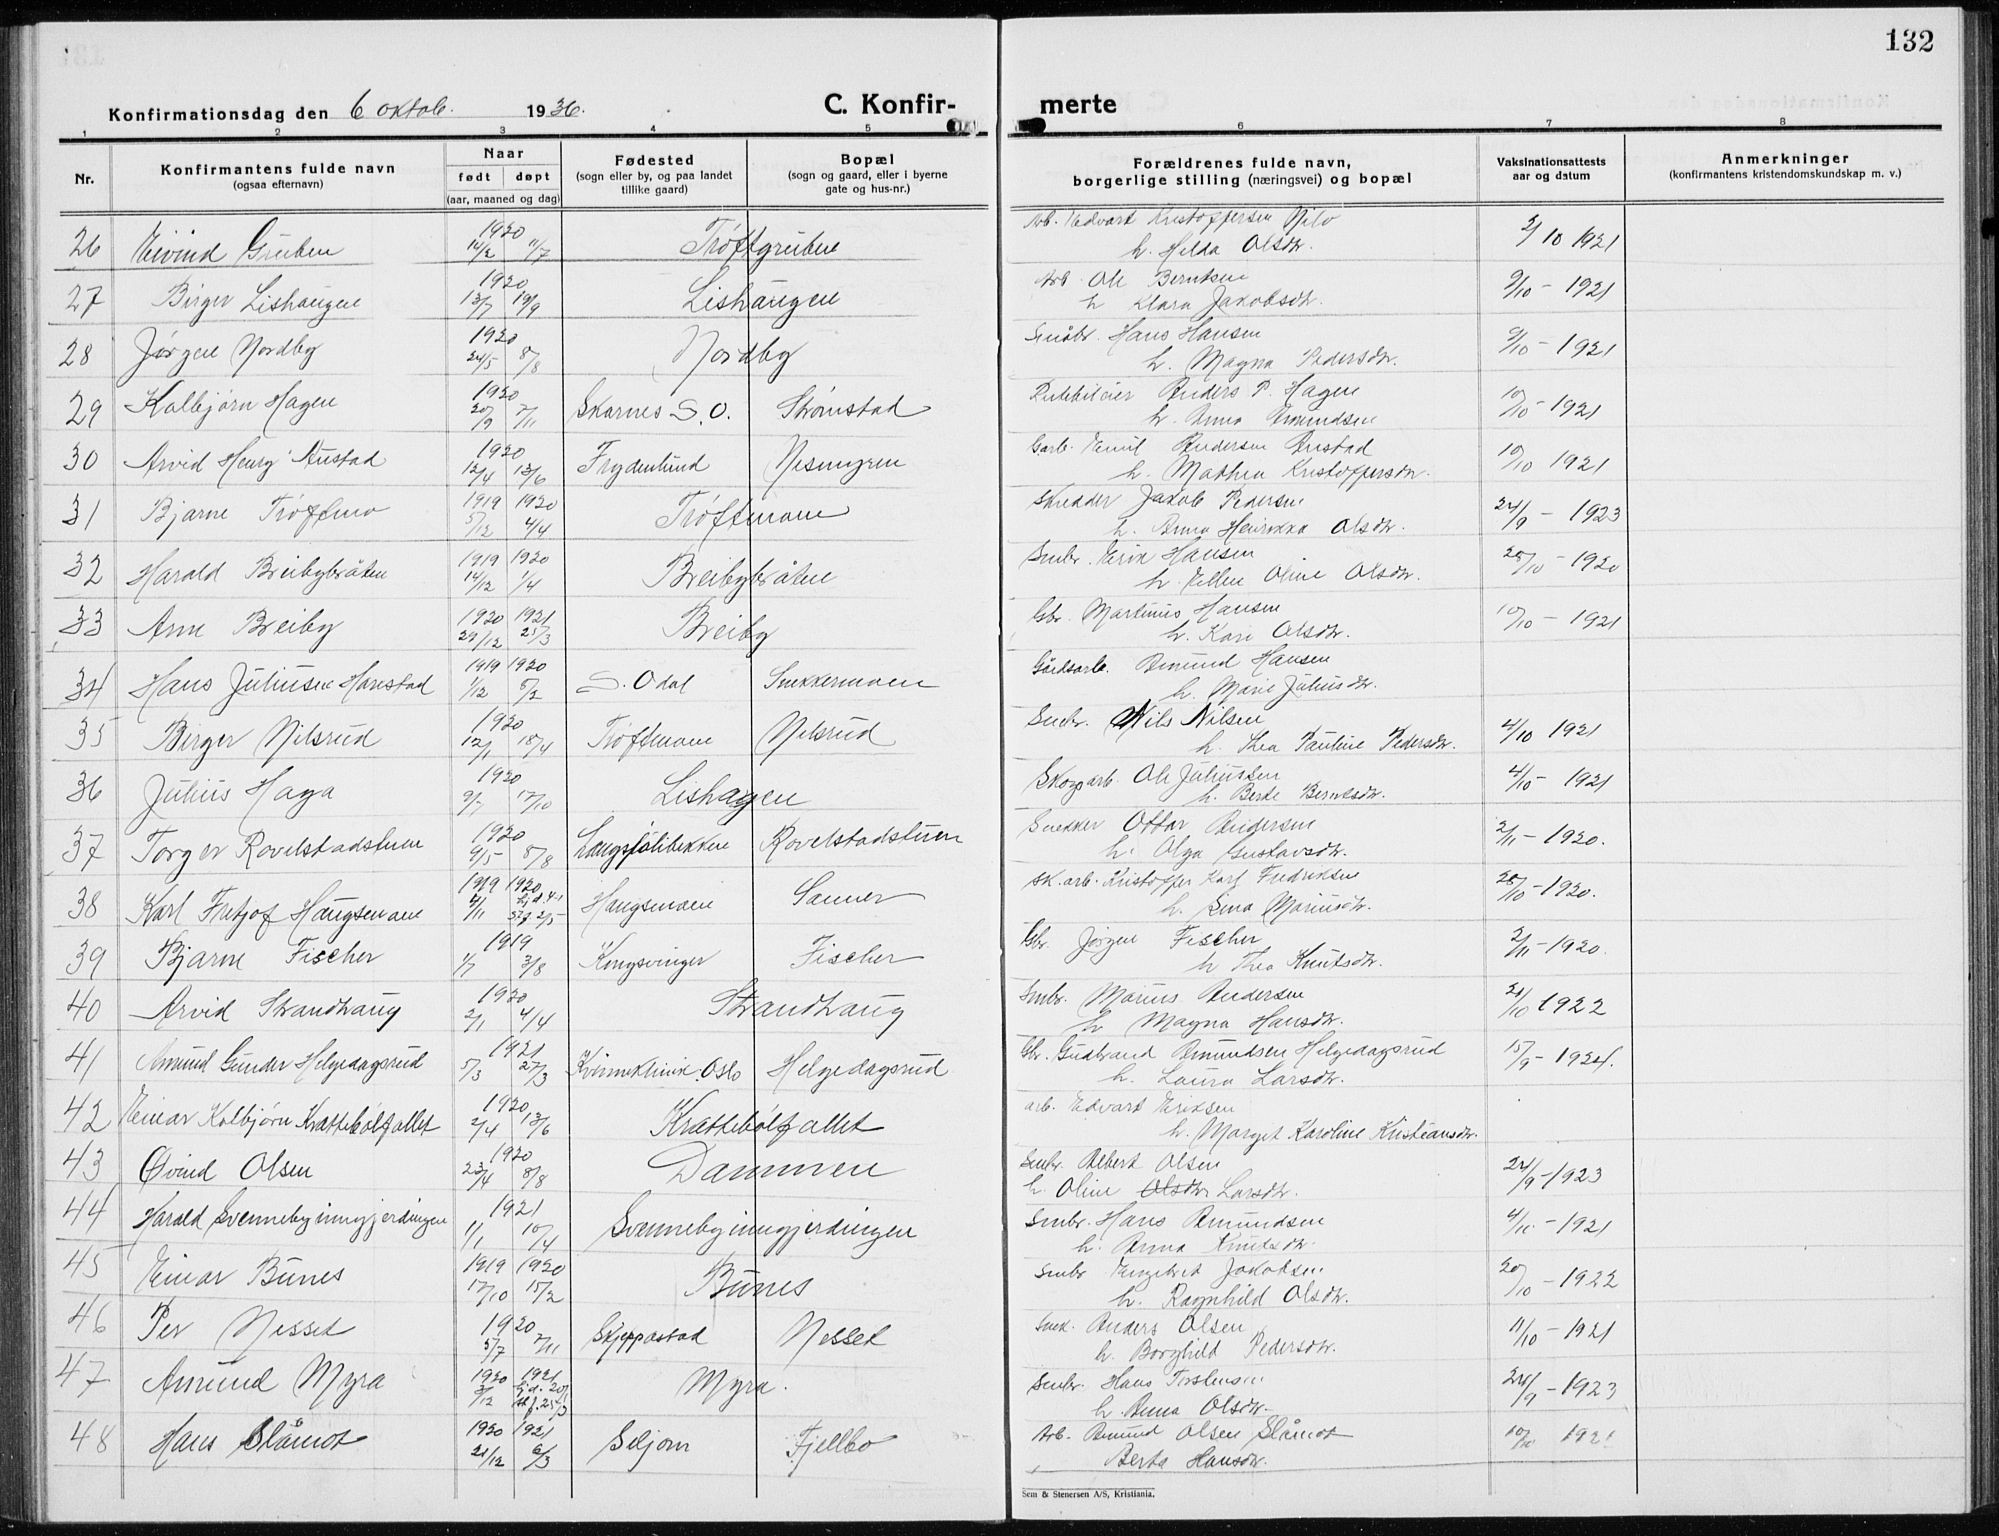 132
Konfirmationsdag den 6 oktob. 1936. C. Konfir- merte
1 2 3 4 5 6 7 8
Nr. Konfirmantens fulde navn (ogsaa efternavn) Naar født døpt (aar, maaned og dag) Fødested (sogn eller by, og paa landet tillike gaard) Bopæl (sogn og gaard, eller i byerne gate og hus-nr.) Forældrenes fulde navn, borgerlige stilling (næringsvei) og bopæl Vaksinationsattests aar og datum Anmerkninger (konfirmantens kristendomskundskap m. v.)
26 Eivind Gruben 1920 14/2 11/7 Tröftgruben Arb. Edvart Kristoffersen Nilo
h. Hilda Olsdtr. 3/10 1921
27 Birger Lishaugen 1920 13/7 19/9 Lishaugen Arb. Ole Berntsen
h Klara Jakobsdtr. 9/10 - 1921
28 Jørgen Nordby 1920 24/5 8/8 Nordby Småbr. Hans Hansen
h. Magna Pedersdtr. 9/10 - 1921
29 Kolbjørn Hagen 1920 20/9 7/11 Skarnes S.O. Strömstad Rutebileier Anders P. Hagen
h. Anna Amundsen 10/10 - 1921
30 Arvid Henry Austad 1920 12/4 13/6 Frydenlund Nesmyren Garb. Emil Andersen Austad
h. Mathea Kristoffersdtr. 10/10 1921
31 Bjarne Tröftmo 1919 1920 5/12 4/4 Tröftmoen Skredder Jakob Pedersen
h. Anna Henrikka Olsdtr. 24/9 - 1923
32 Harald Breibybråten 1919 1920 14/12 1/4 Breibybråten Smbr. Erik Hansen
h. Ellen Oline Olsdtr. 25/10 - 1920
33 Arne Breiby 1920 1921 29/12 25/3 Breiby Gbr. Martinus Hansen
h. Kari Olsdtr. 10/10 - 1921
34 Hans Juliusen Harstad 1919 1920 1/12 5/2 S. Odal Snekkermoen Gårdsarb. Amund Hansen
h. Marie Juliusdtr.
35 Birger Nilsrud 1920 12/1 18/4 Tröftmoen Nilsrud Smbr. Nils Nilsen
h. Thea Pauline Pedersdtr. 4/10 1921
36 Julius Haga 1920 9/7 17/10 Lishagen Skogsarb. Ole Juliussen
h. Berte Berntsdtr. 4/10 - 1921
37 Torger Rovelstadstuen 1920 9/5 8/8 Rovelstadstuen Snekker Ottar Andersen
h. Olga Gustavsdtr. 2/11 - 1920.
38 Karl Fritjof Haugsmoen 1919 1920 4/11 2/5 Haugsmoen Sanner sk. arb. Kristoffer Karl Fredriksen
h. Mariusdtr. 28/10 - 1920.
39 Bjarne Fischer 1919 1/7 3/8 Kongsvinger Fischer Gbr. Jörgen Fischer
h Thea Knutsdtr. 2/11 - 1920.
40 Arvid Strandhaug 1920 2/1 4/4 Strandhaug Smbr. Marius Andersen
h Magna Hansdtr. 21/10 1922
41 Amund Gunder Helgedagsrud 1921 5/3 27/3 Kvinneklinik. Oslo Helgedagsrud Gbr. Gudbrand Amundsen Helgedagsrud
h. Laura Larsdtr. 15/9 - 1924.
42 Einar Kolbjørn Krattebölfallet 1920 2/4 13/6 Krattebölfallet arb. Edvart Eriksen
h. Margit Karoline Kristiansdtr.
43 Øivind Olsen 1920 23/4 8/8 Dammen Smbr. Albert Olsen
h. Oline Olsdtr Larsdtr. 24/9 - 1923
44 Harald Svennebyinngjerdingen 1921 1/1 10/4 Svennebyinngjerdingen Smbr. Hans Amundsen
h. Anna Knutsdtr. 4/10 - 1921
45 Einar Bunes 1919 1920 17/10 15/2 Bunes Smbr Engebret Jakobsen
h. Ragnhild Olsdtr. 20/10 - 1922
46 Per Nesset 1920 5/7 7/11 Skjeppastad Nesset Snek. Anders Olsen
h. Borghild Pedersdtr. 11/10 - 1921
47 Amund Myra 1920 1921 3/12 Myra. Smbr. Hans Torstensen
h. Anna Olsdtr. 24/9 - 1923
48 Hans Slåmot 1920 1921 21/12 6/3 Seljom Fjellbo Arb. Amund Olsen Slåmot
Berta Hansdtr. 10/10 1921
Sem & Stenersen A/S, Kristiania.